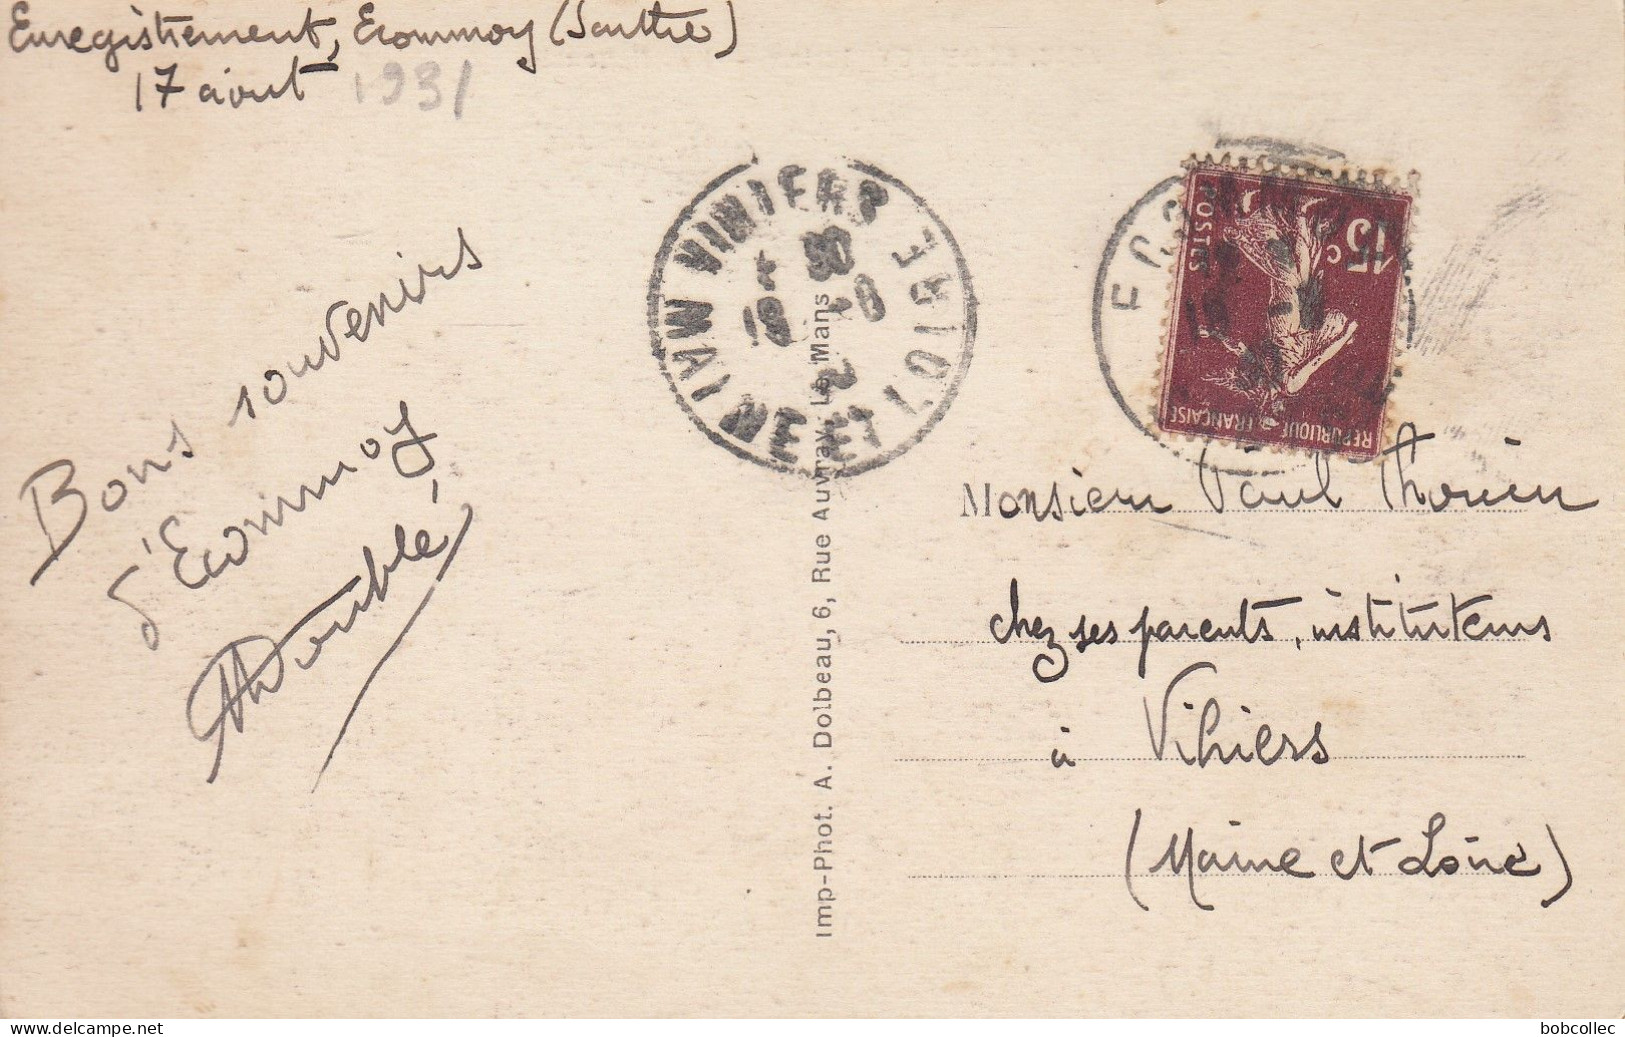 Enregistrement, Ecommoy (Sarthe)
17 août 1931
Bons souvenirs
d'Ecommoy
VIHIERS
MAINE ET LOIRE
15c
POSTES
REPUBLIQUE FRANÇAISE
Imp-Phot. A. Dolbeau, 6, Rue Auvray, Le Mans
Monsieur Paul
chez ses parents, instituteurs
à Vihiers
(Maine et Loire)
bobcollec